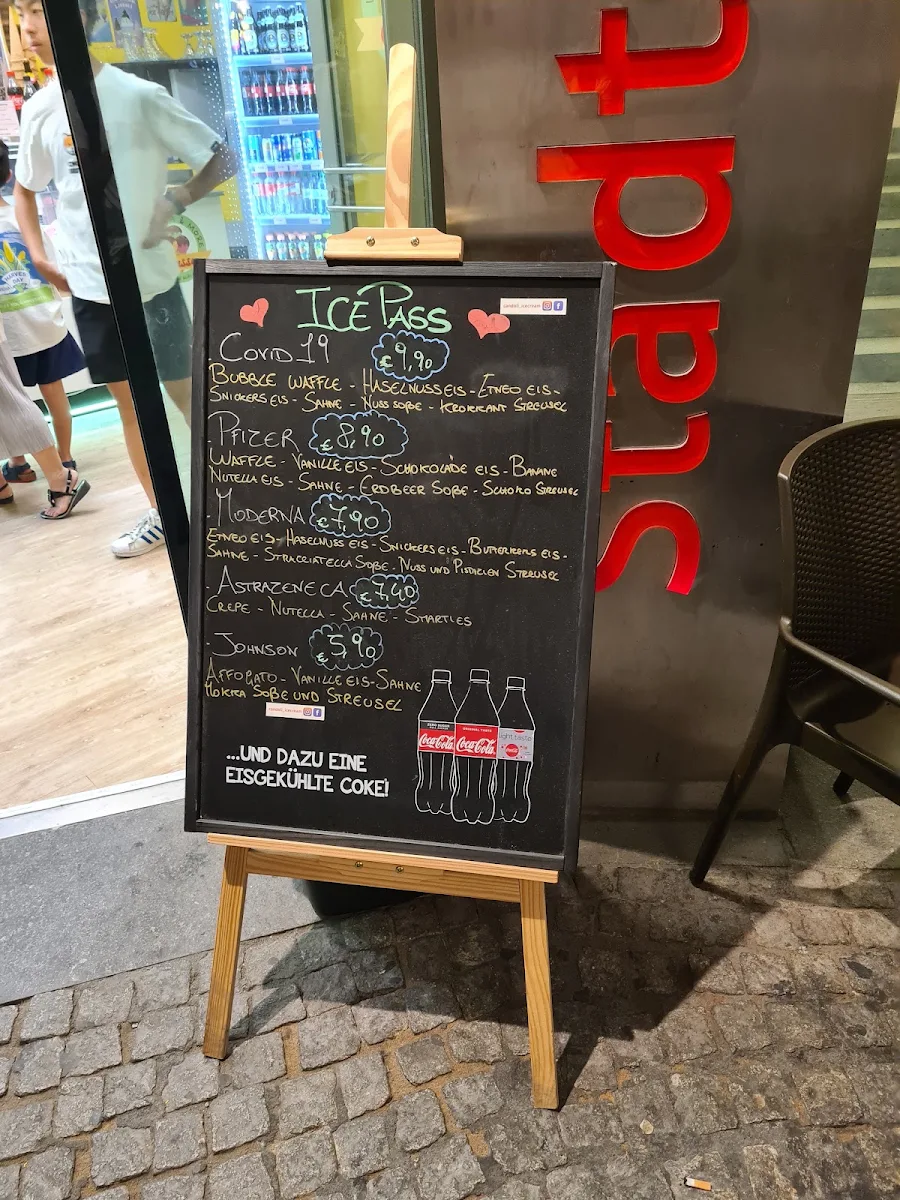 ICE PASS
COVID 19 € 9,90
BUBBLE WAFFLE - HASELNUSSEIS - ETNEO EIS -
SNICKERS EIS - SAHNE - NUSS SOßE - KROKKANT STREUSEL
PFIZER € 8,90
WAFFLE - VANILLE EIS - SCHOKOLADE EIS - BANANE
NUTELLA EIS - SAHNE - ERDBEER SOßE - SCHOKO STREUSEL
MODERNA € 7,90
ETNEO EIS - HASELNUSS EIS - SNICKERS EIS - BUTTERKEKS EIS -
SAHNE - STRACCIATELLA SOßE - NUSS UND PISTAZIEN STREUSEL
ASTRAZENECA € 7,40
CREPE - NUTELLA - SAHNE - SMARTIES
JOHNSON € 5,90
AFFOGATO - VANILLE EIS - SAHNE
MOKKA SOßE UND STREUSEL
...UND DAZU EINE
EISGEKÜHLTE COKE!
Coca-Cola
Coca-Cola
light taste
stadt